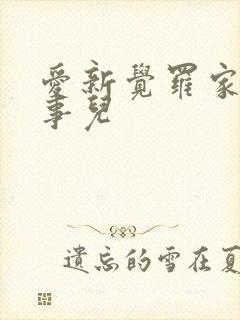 愛新覺羅家
事兒
遺忘的雪在夏